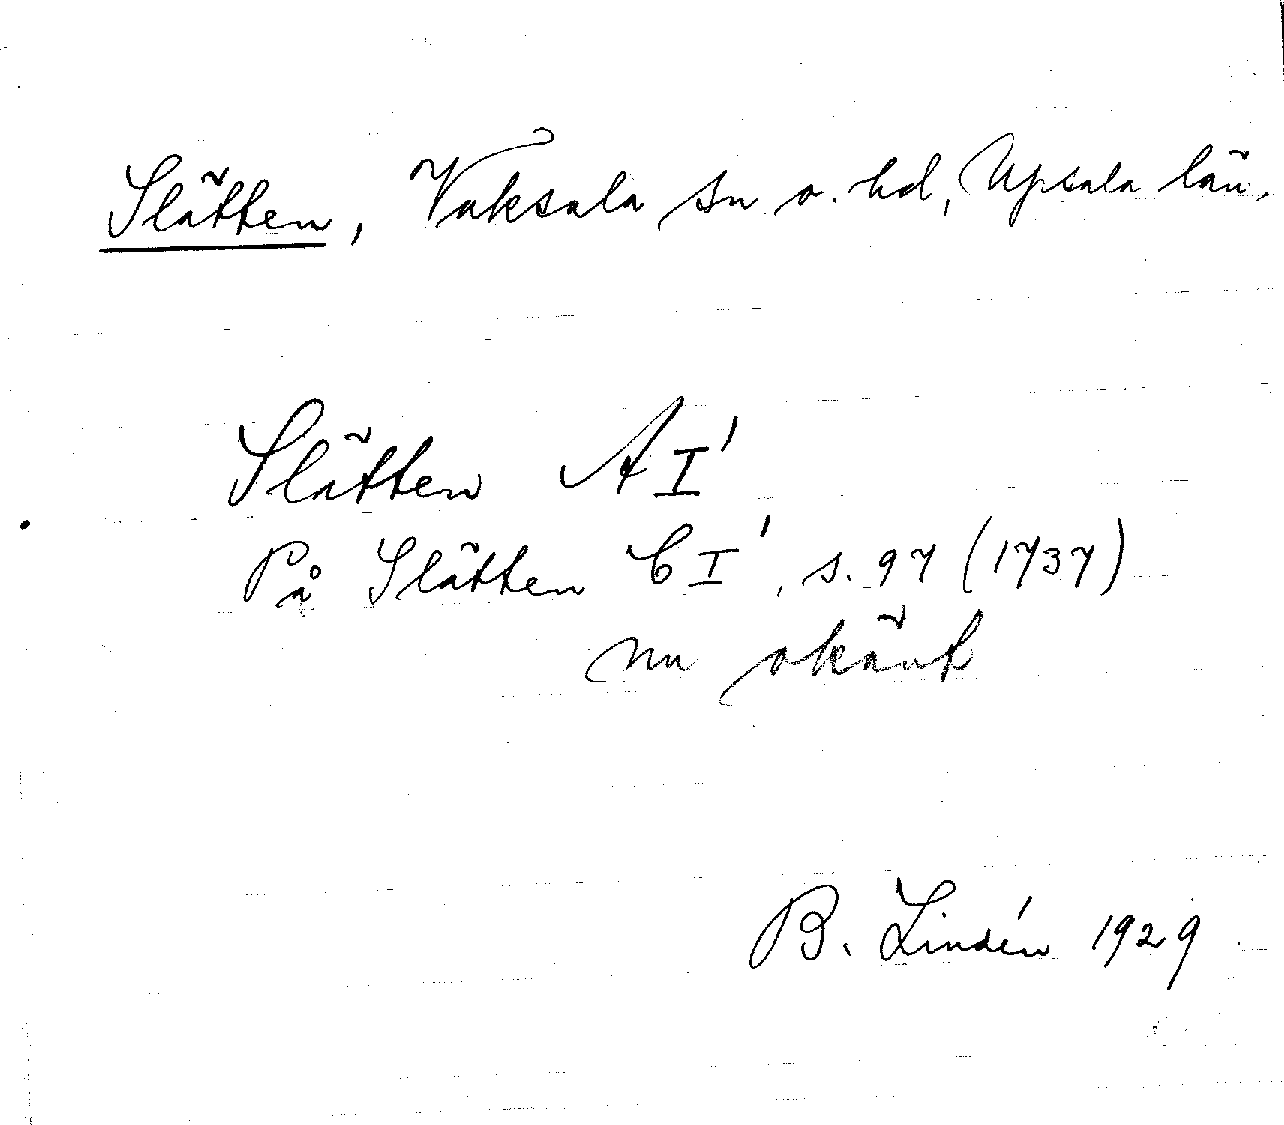 Slätten, Vaksala sn o. hd, Upsala län.
Slätten A I'
På Slätten C I', s. 97 (1737)
nu okänt
B. Lindén 1929